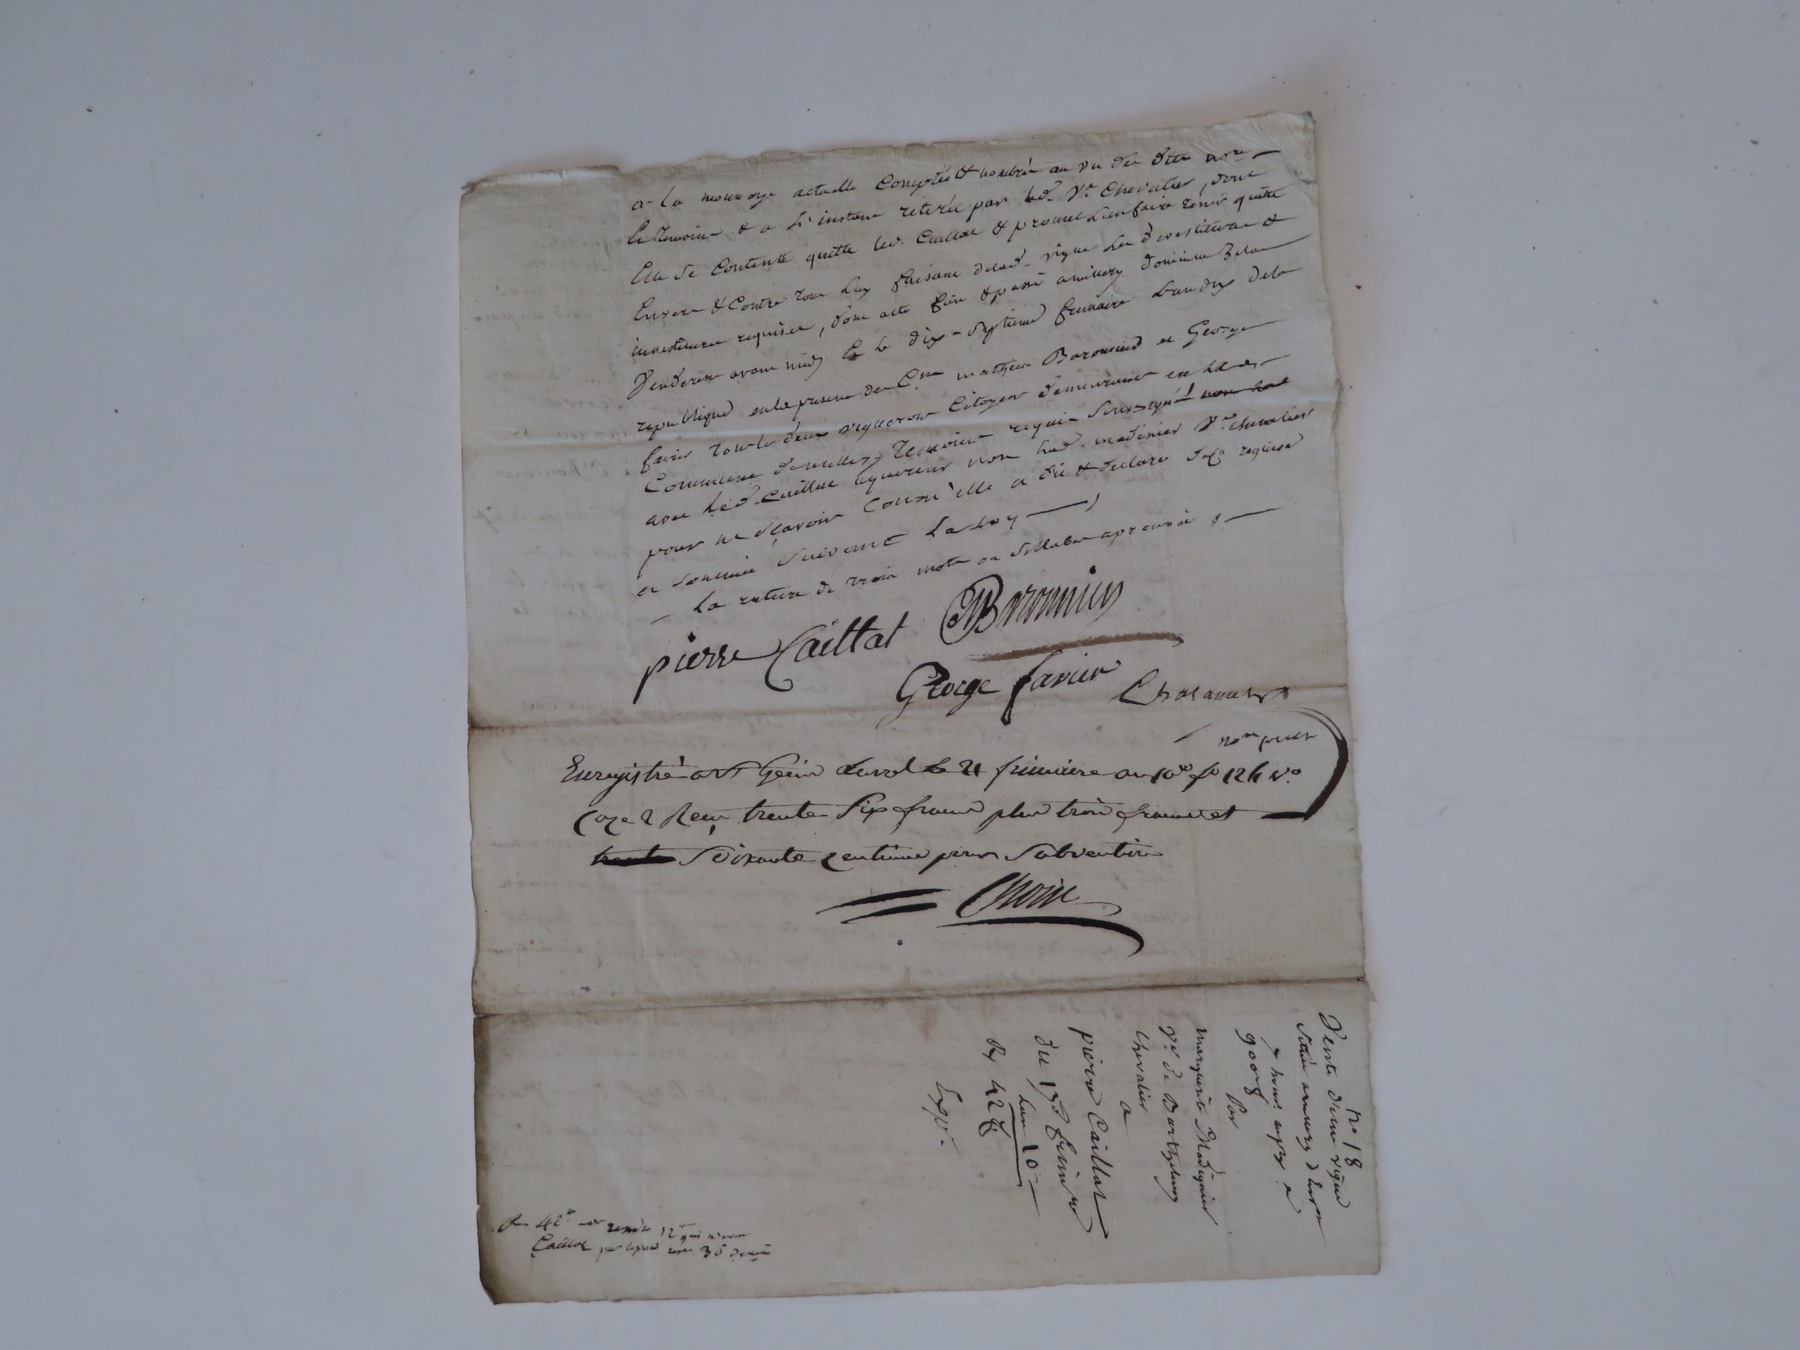 a la monnoye actuelle Comptée & nombrée au vu du dits no.re
& Temoins & a L'instant retirée par lad. Ve. Chevalier, dont
Elle Se Contente quitte led. Caillat & promet L'en faire tenir quitte
Envers & Contre tous luy faisant delad. vigne Les devestitures &
investitures requises, dont acte fait & passé a millery domicile de la
Venderesse avant midy Le dix-septieme frimaire L'an dix de la
republique en la presence des C.ens mathieu Baronnier et George
favier tous les deux vignerons Citoyens demeurant en lad.
Commune de millery Temoins requis Soussignés
avec Led. Caillat aquereur non lad. madinier Ve. chevalier
pour ne Sçavoir Comm'elle a dit & declaré de ce requise
et Sommée Suivant La Loy
La rature de trois mots ou Sillabes aprouvée
pierre Caillat Baronnier
George favier
no.re public
Enregistré a St Genis Laval le 21 frimaire an 10 fo 124 Vo
Case 2 Reçu trente Six francs plus trois francs et
Soixante centimes pour Subvention
N.o 18
Vente d'une vigne
900 f
Par
Marguerite Madinier
Ve. de Barthelemy
Chevalier
a
pierre Caillat
du 17 frimaire
L'an 10
R 42
Exp.
42
Caillat